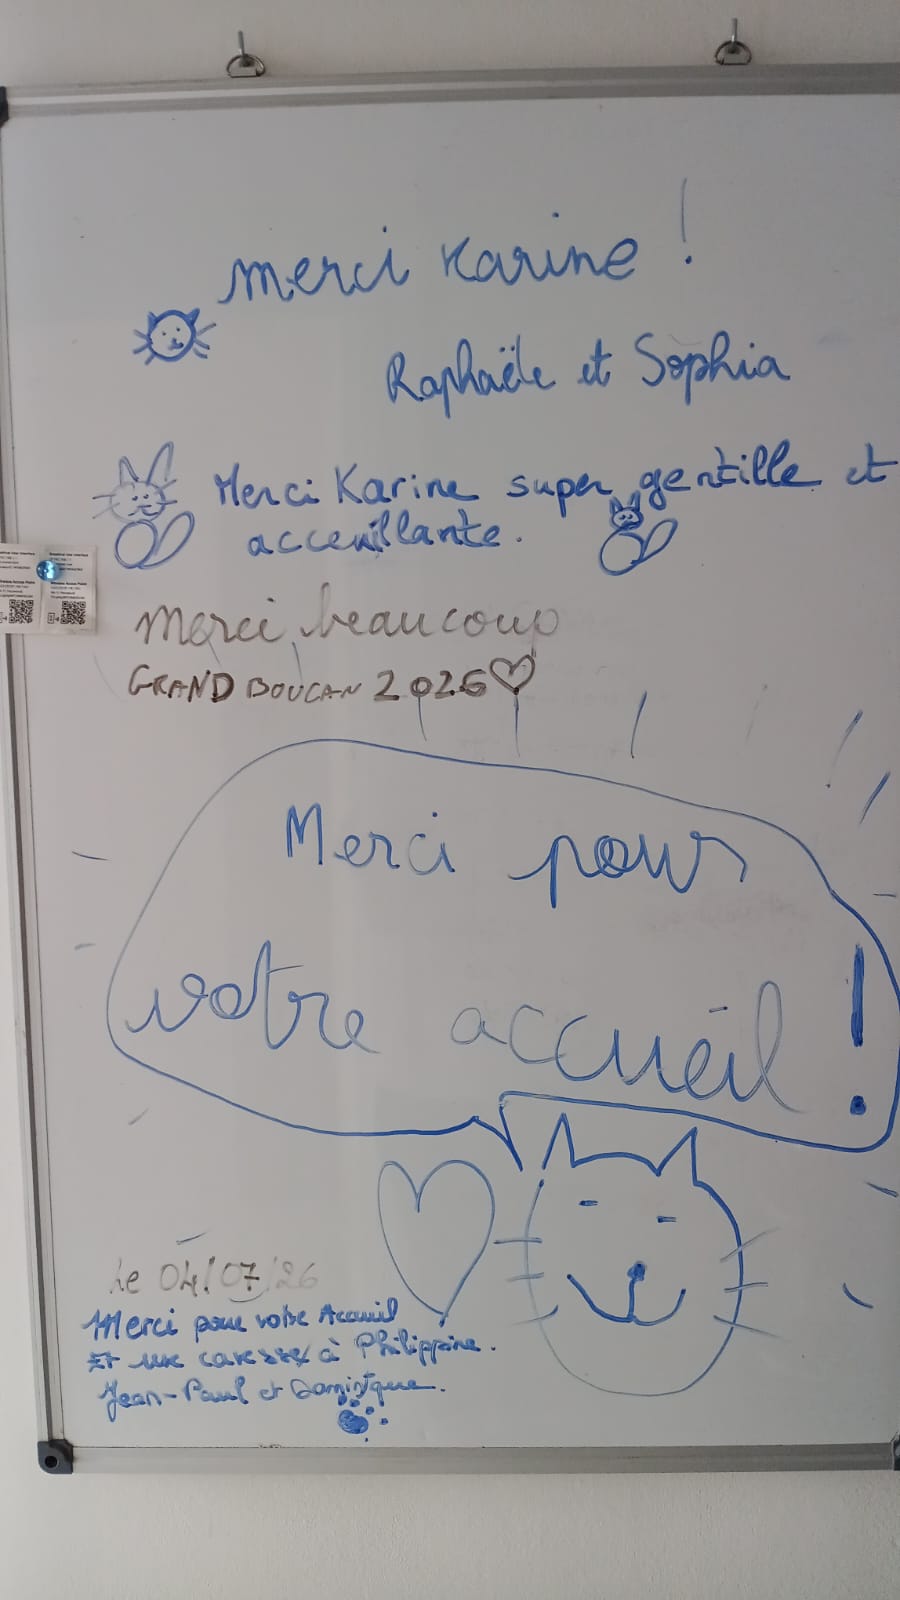 merci Karine !
Raphaële et Sophia
Merci Karine super gentille et
acceuillante.
Merci beaucoup
GRAND BOUCAN 2026
Merci pour
votre accueil !
Le 04/07/26
Merci pour votre Accueil
Et une caresse à Philippine.
Jean-Paul et Dominique.